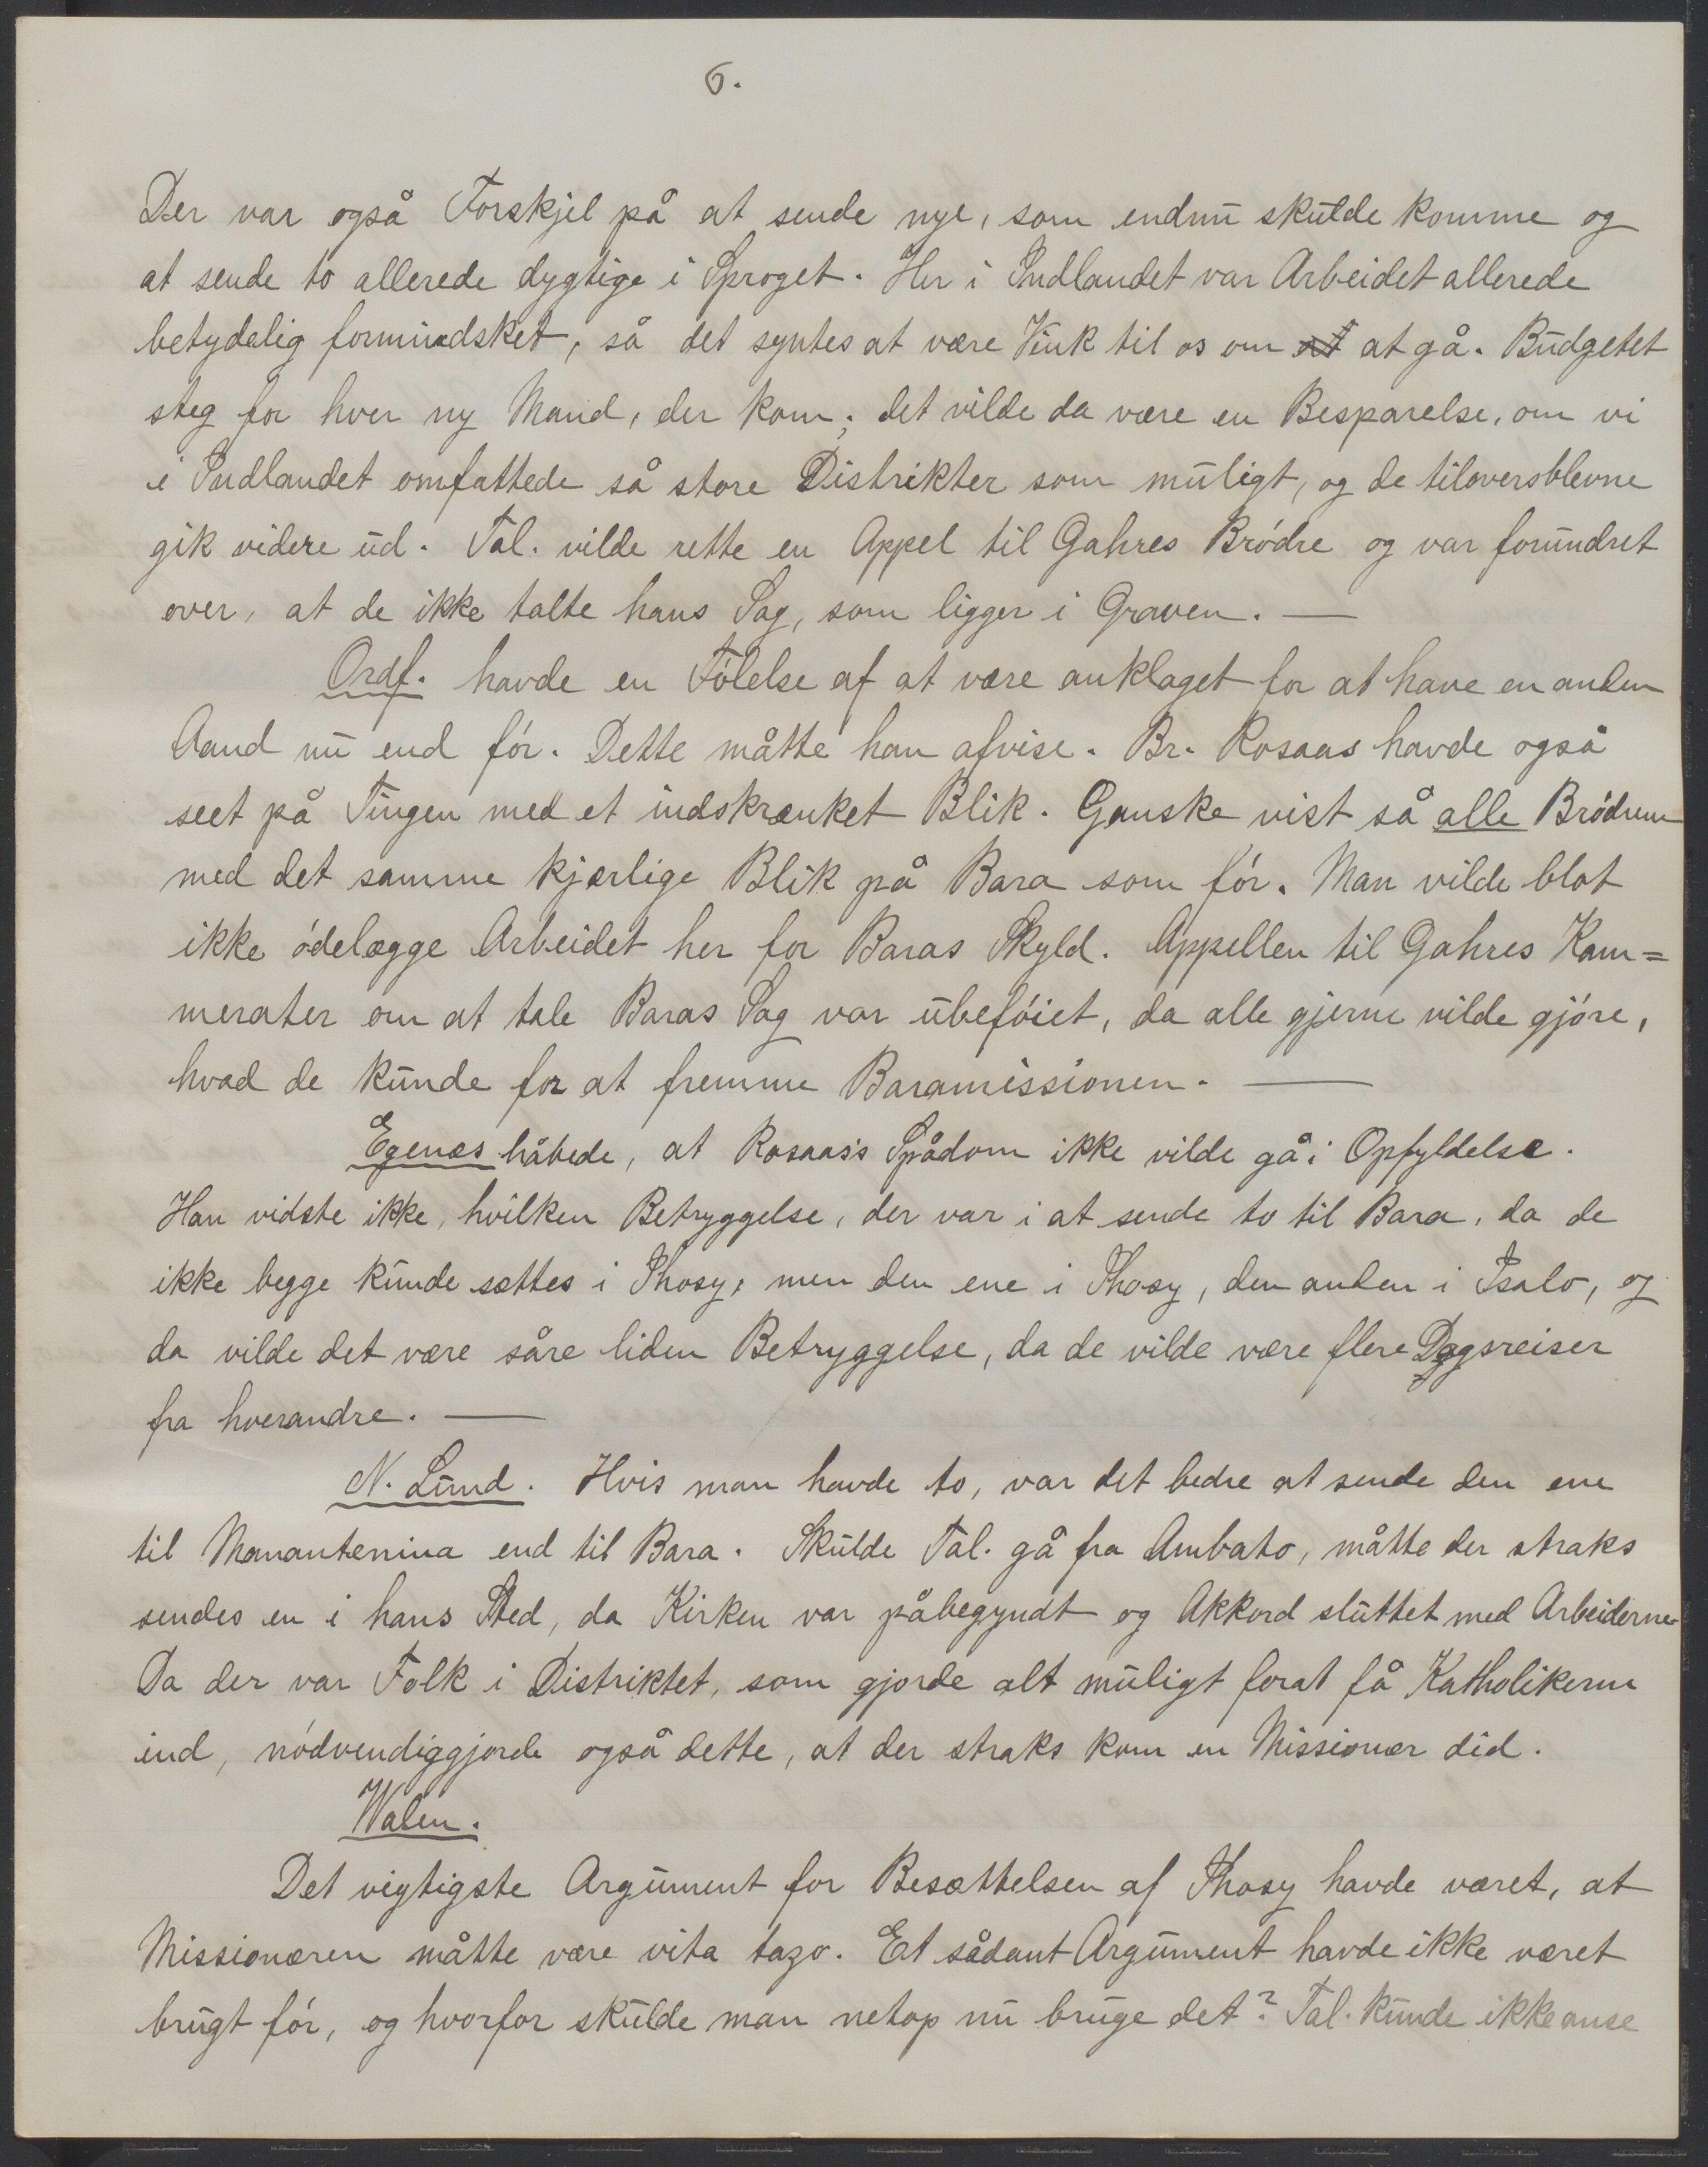 6.
Der var også Forskjel på at sende nye, som endnu skulde komme og
at sende to allerede dygtige i Sproget. Her i Indlandet var Arbeidet allerede
betydelig formindsket, så det syntes at være Vink til os om at at gå. Budgetet
steg for hver ny Mand, der kom; det vilde da være en Besparelse, om vi
i Indlandet omfattede så store Distrikter som muligt, og de tiloversblevne
gik videre ud. Tal. vilde rette en Appel til Gahres Brödre og var forundret
over, at de ikke talte hans Sag, som ligger i Graven. —
Ordf. havde en Fölelse af at være anklaget for at have en anden
Aand nu end för. Dette måtte han afvise. Br. Rosaas havde også
seet på Tingen med et indskrænket Blik. Ganske vist så alle Brödrene
med det samme kjærlige Blik på Bara som för. Man vilde blot
ikke ödelægge Arbeidet her for Baras Skyld. Appellen til Gahres Kam=
merater om at tale Baras Sag var ubeföiet, da alle gjerne vilde gjöre,
hvad de kunde for at fremme Baramissionen. —
Egenæs håbede, at Rosaas's Spådom ikke vilde gå i Opfyldelse.
Han vidste ikke, hvilken Betryggelse, der var i at sende to til Bara, da de
ikke begge kunde sættes i Ihosy, men den ene i Ihosy, den anden i Isalo, og
da vilde det være såre liden Betryggelse, da de vilde være flere Dagsreiser
fra hverandre. —
N. Lund. Hvis man havde to, var det bedre at sende den ene
til Manantenina end til Bara. Skulde Tal. gå fra Ambato, måtte der straks
sendes en i hans Sted, da Kirken var påbegyndt og Akkord sluttet med Arbeiderne
Da der var Folk i Distriktet, som gjorde alt muligt forat få Katholikerne
ind, nödvendiggjorde også dette, at der straks kom en Missionær did.
Walen.
Det vigtigste Argument for Besættelsen af Ihosy havde været, at
Missionæren måtte være vita tazo. Et sådant Argument havde ikke været
brugt för, og hvorfor skulde man netop nu bruge det? Tal. kunde ikke anse